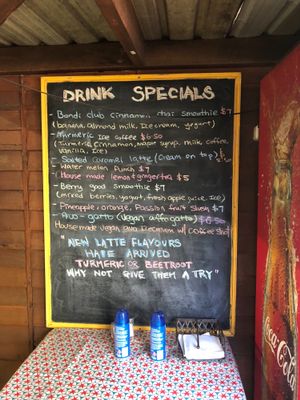 DRINK SPECIALS
- Bondi club cinnamon chai smoothie $7
(banana, almond milk, Icecream, yogurt)
- Turmeric Ice coffee $6.50
(Turmeric, cinnamon, maple syrup, milk, coffee
vanilla, Ice)
- Salted caramel latte (cream on top)
- Water melon Punch $7
- House made lemon & ginger tea $5
- Berry good smoothie $7
(mixed berries, yogurt, fresh apple juice, Ice)
- Pineapple, orange, Passion fruit slush $7
- Avo-gatto (vegan affogatto) $6.50
House made vegan avo icecream w/ coffee shot
"NEW LATTE FLAVOURS
HAVE ARRIVED
TURMERIC OR BEETROOT
WHY NOT GIVE THEM A TRY"
Coca-Cola